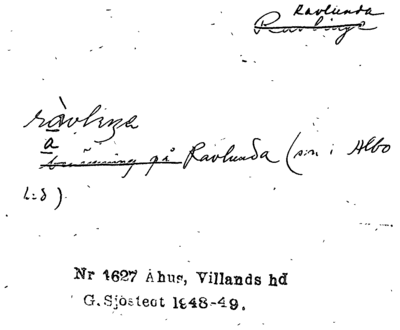 Ravlunda
Ravlinge
ràvlıŋa
a
benämning på Ravlunda (sn i Albo
hd).
Nr 1627 Åhus, Villands hd
G. Sjöstedt 1948-49.